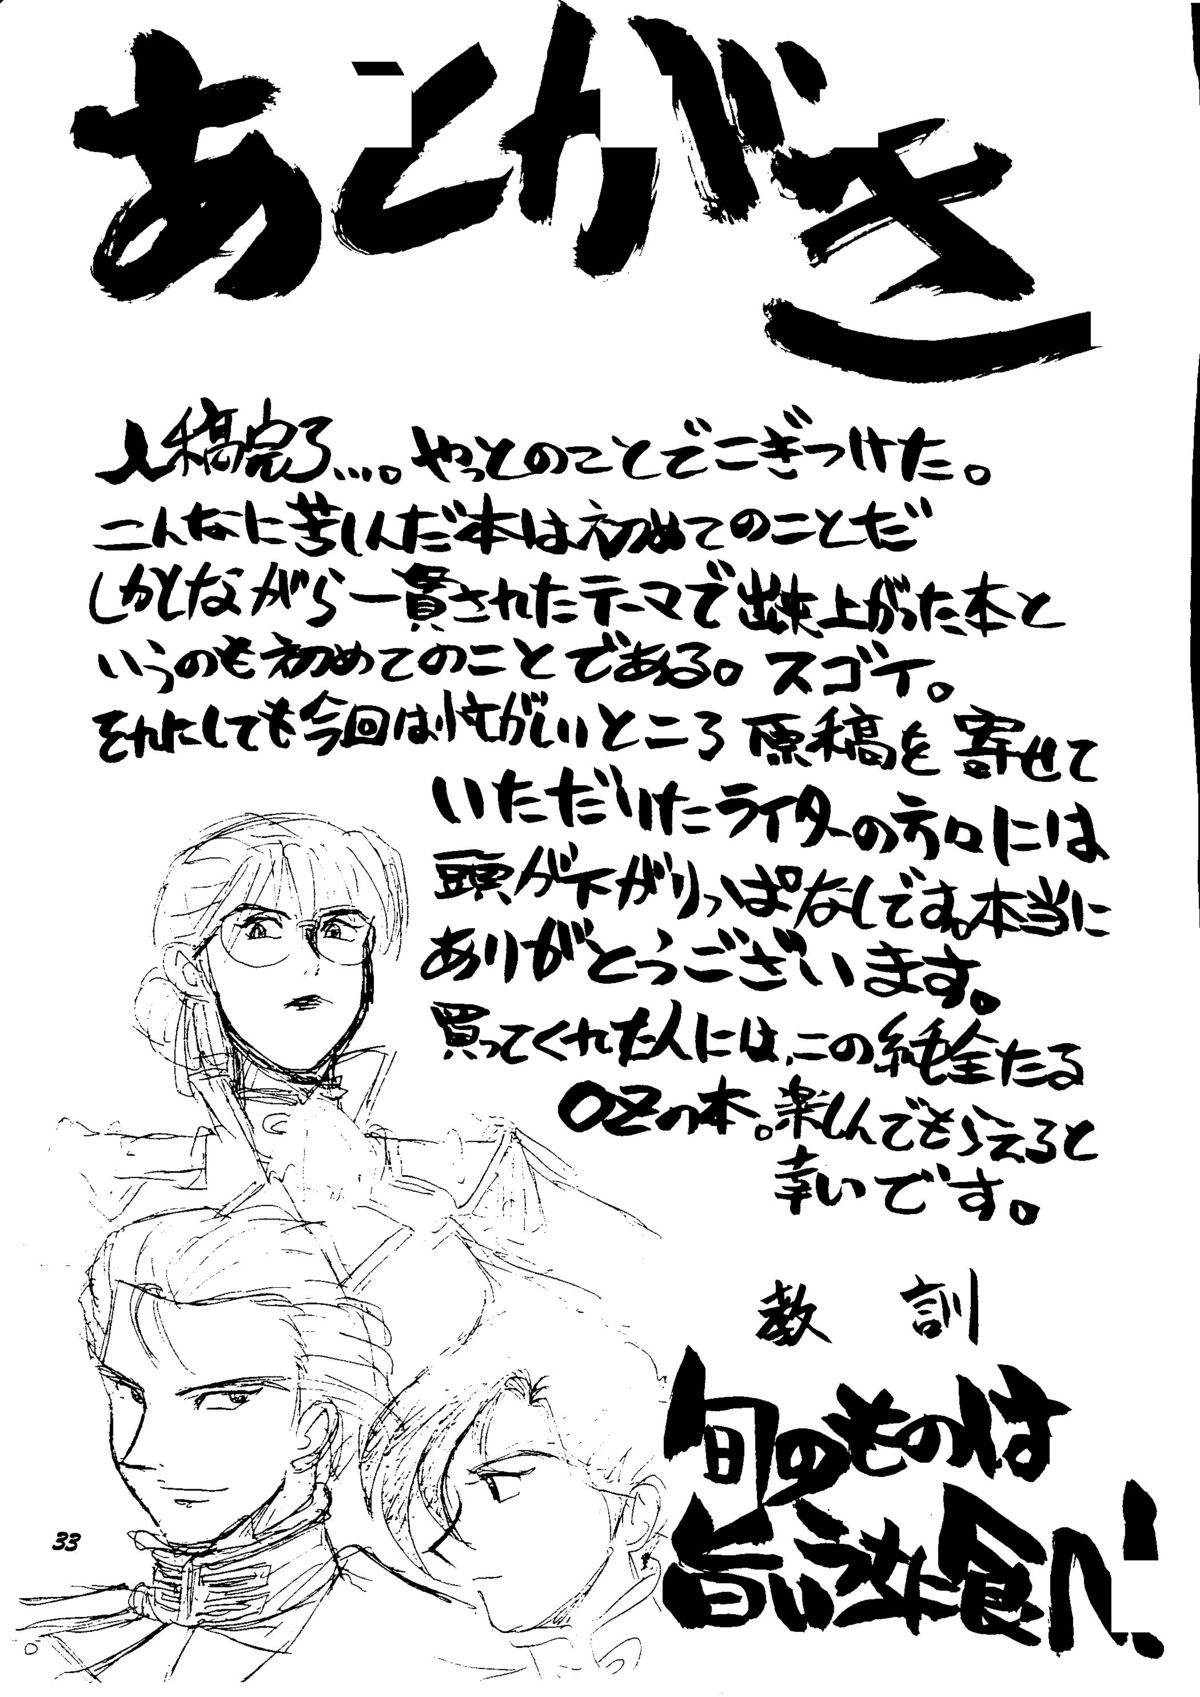 あとがき
入稿完了…。やっとのことでこぎつけた。
こんなに苦しんだ本は初めてのことだ
しかしながら一貫されたテーマで出来上がった本と
いうのも初めてのことである。スゴイ。
それにしても今回は忙がしいところ原稿を寄せて
いただいたライターの方々には
頭が下がりっぱなしです。本当に
ありがとうございます。
買ってくれた人には、この純全たる
OZの本。楽しんでもらえると
幸いです。
教訓
旬のものは
旨いうちに食べ!
33